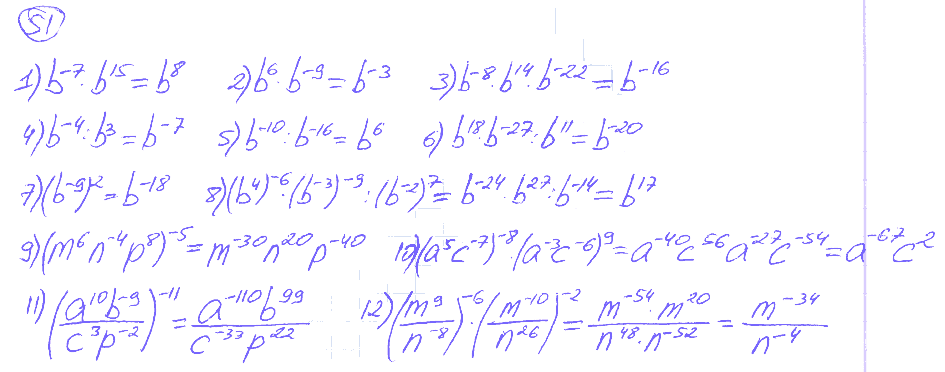 51
1) b⁻⁷ · b¹⁵ = b⁸ 2) b⁶ · b⁻⁹ = b⁻³ 3) b⁻⁸ · b¹⁴ · b⁻²² = b⁻¹⁶
4) b⁻⁴ : b³ = b⁻⁷ 5) b⁻¹⁰ : b⁻¹⁶ = b⁶ 6) b¹⁸ · b⁻²⁷ : b¹¹ = b⁻²⁰
7) (b⁻⁹)² = b⁻¹⁸ 8) (b⁴)⁻⁶ · (b⁻³)⁻⁹ : (b⁻²)⁷ = b⁻²⁴ · b²⁷ : b⁻¹⁴ = b¹⁷
9) (m⁶n⁻⁴p⁸)⁻⁵ = m⁻³⁰n²⁰p⁻⁴⁰ 10) (a⁵c⁻⁷)⁻⁸ · (a⁻³c⁻⁶)⁹ = a⁻⁴⁰c⁵⁶a⁻²⁷c⁻⁵⁴ = a⁻⁶⁷c²
11) (a¹⁰b⁻⁹/c³p⁻²)⁻¹¹ = a⁻¹¹⁰b⁹⁹/c⁻³³p²² 12) (m⁹/n⁻⁸)⁻⁶ · (m⁻¹⁰/n²⁶)⁻² = m⁻⁵⁴ · m²⁰/n⁴⁸ · n⁻⁵² = m⁻³⁴/n⁻⁴